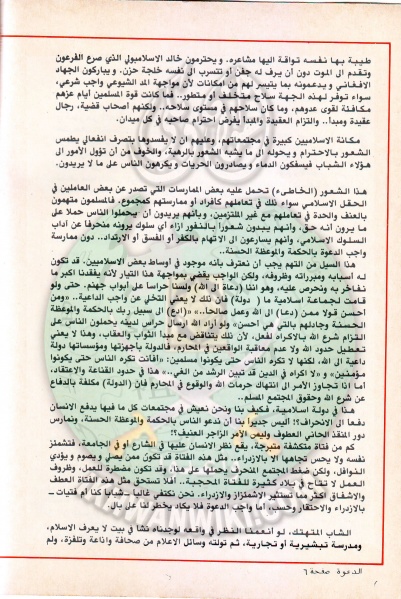 طيبة بها نفسه تواقة اليها مشاعره. ويحترمون خالد الاسلامبولي الذي صرع الفرعون
وتقدم الى الموت دون أن يرف له جفن أو تتسرب الى نفسه خلجة حزن. ويباركون الجهاد
الافغاني ويدعمونه بما يتيسر لهم من امكانات لأن مواجهة المد الشيوعي واجب شرعي،
سواء توفر لهذه الجهة سلاح متخلف أو متطور.. فما كانت قوة المسلمين أيام عزهم
مكافئة لقوى عدوهم، وما كان سلاحهم في مستوى سلاحه.. ولكنهم أصحاب قضية، رجال
عقيدة ومبدأ.. والتزام العقيدة والمبدأ يفرض احترام صاحبه في كل ميدان.
مكانة الاسلاميين كبيرة في مجتمعاتهم، وعليهم ان لا يفسدوها بتصرف انفعالي يطمس
الشعور بالاحترام ويحوله الى ما يشبه الشعور بالرهبة، والخوف من أن تؤول الأمور الى
هؤلاء الشباب فيسفكون الدماء ويصادرون الحريات ويكرهون الناس على ما لا يريدون.
هذا الشعور (الخاطىء) تحمل عليه بعض الممارسات التي تصدر عن بعض العاملين في
الحقل الاسلامي سواء ذلك في تعاملهم كأفراد أو ممارستهم كمجموع. فالمسلمون متهمون
بالعنف والحدة في تعاملهم مع غير الملتزمين، وبأنهم يريدون أن يحملوا الناس حملا على
ما يرون أنه حق، وأنهم يبدون شعورا بالنفور ازاء أي سلوك يرونه منحرفا عن آداب
السلوك الاسلامي، وأنهم يسارعون الى الاتهام بالكفر أو الفسق أو الارتداد.. دون ممارسة
واجب الدعوة بالحكمة والموعظة الحسنة..
هذا السيل من التهم يجب أن نعترف بأنه موجود في أوساط بعض الاسلاميين. قد تكون
له أسبابه ومبرراته وظروفه، ولكن الواجب يقضي بمواجهة هذا التيار لأنه يفقدنا اكبر ما
نفاخر به ونحرص عليه، وهو اننا (دعاة الى الله) ولسنا حراسا على أبواب جهنم. حتى ولو
قامت لجماعة اسلامية ما (دولة) فان ذلك لا يعني التخلي عن واجب الداعية.. «ومن
أحسن قولا ممن (دعا) الى الله وعمل صالحا..» «(ادع) الى سبيل ربك بالحكمة والموعظة
الحسنة وجادلهم بالتي هي أحسن» ولو أراد الله ارسال حراس لدينه يحملون الناس على
التزام شرع الله بالاكراه لفعل، لأن ذلك يتناقض مع مبدأ الثواب والعقاب، وهذا لا يعني
تعطيل حدود الله ولا عدم معاقبة الواقعين في المحارم، فالدولة بأجهزتها ومؤسساتها دولة
داعية الى الله، لكنها لا تكره الناس حتى يكونوا مسلمين: «أفأنت تكره الناس حتى يكونوا
مؤمنين» و «لا اكراه في الدين قد تبين الرشد من الغي..» هذا في حدود القناعة والاعتقاد
أما اذا تجاوز الأمر الى انتهاك حرمات الله والوقوع في المحارم فان (الدولة) مكلفة بالدفاع
عن شرع الله وحقوق المجتمع المسلم..
هذا في دولة اسلامية، فكيف بنا ونحن نعيش في مجتمعات كل ما فيها يدفع الانسان
دفعا الى الانحراف؟! أليس جديرا بنا أن ندعو الناس بالحكمة والموعظة الحسنة، ونمارس
دور المنقذ الحاني العطوف وليس الأمر الزاجر العنيف؟!
كم من فتاة متكشفة متبرجة، يقع نظر الانسان عليها في الشارع أو في الجامعة، فتشمئز
نفسه ولا يحس تجاهها الا بالازدراء.. مثل هذه الفتاة قد تكون ممن يصلي ويصوم ويؤدي
النوافل، لكن ضغط المجتمع المنحرف يحملها على هذا، وقد تكون مضطرة للعمل، وظروف
العمل لا تتاح في بلاد كثيرة للفتاة المحجبة.. أفلا تستحق مثل هذه الفتاة العطف
والاشفاق أكثر مما تستثير الاشمئزاز والازدراء. نحن نكتفي غالبا ـ شبابا كنا أم فتيات ـ
بالازدراء والاحتقار وحسب، أما واجب الدعوة فلا يكاد يخطر لنا على بال..
الشاب المتهتك، لو أنعمنا النظر في واقعه لوجدناه نشأ في بيت لا يعرف الاسلام،
ومدرسة تبشيرية أو تجارية، ثم تولته وسائل الاعلام من صحافة واذاعة وتلفزة، ولم
الدعوة صفحة ٦